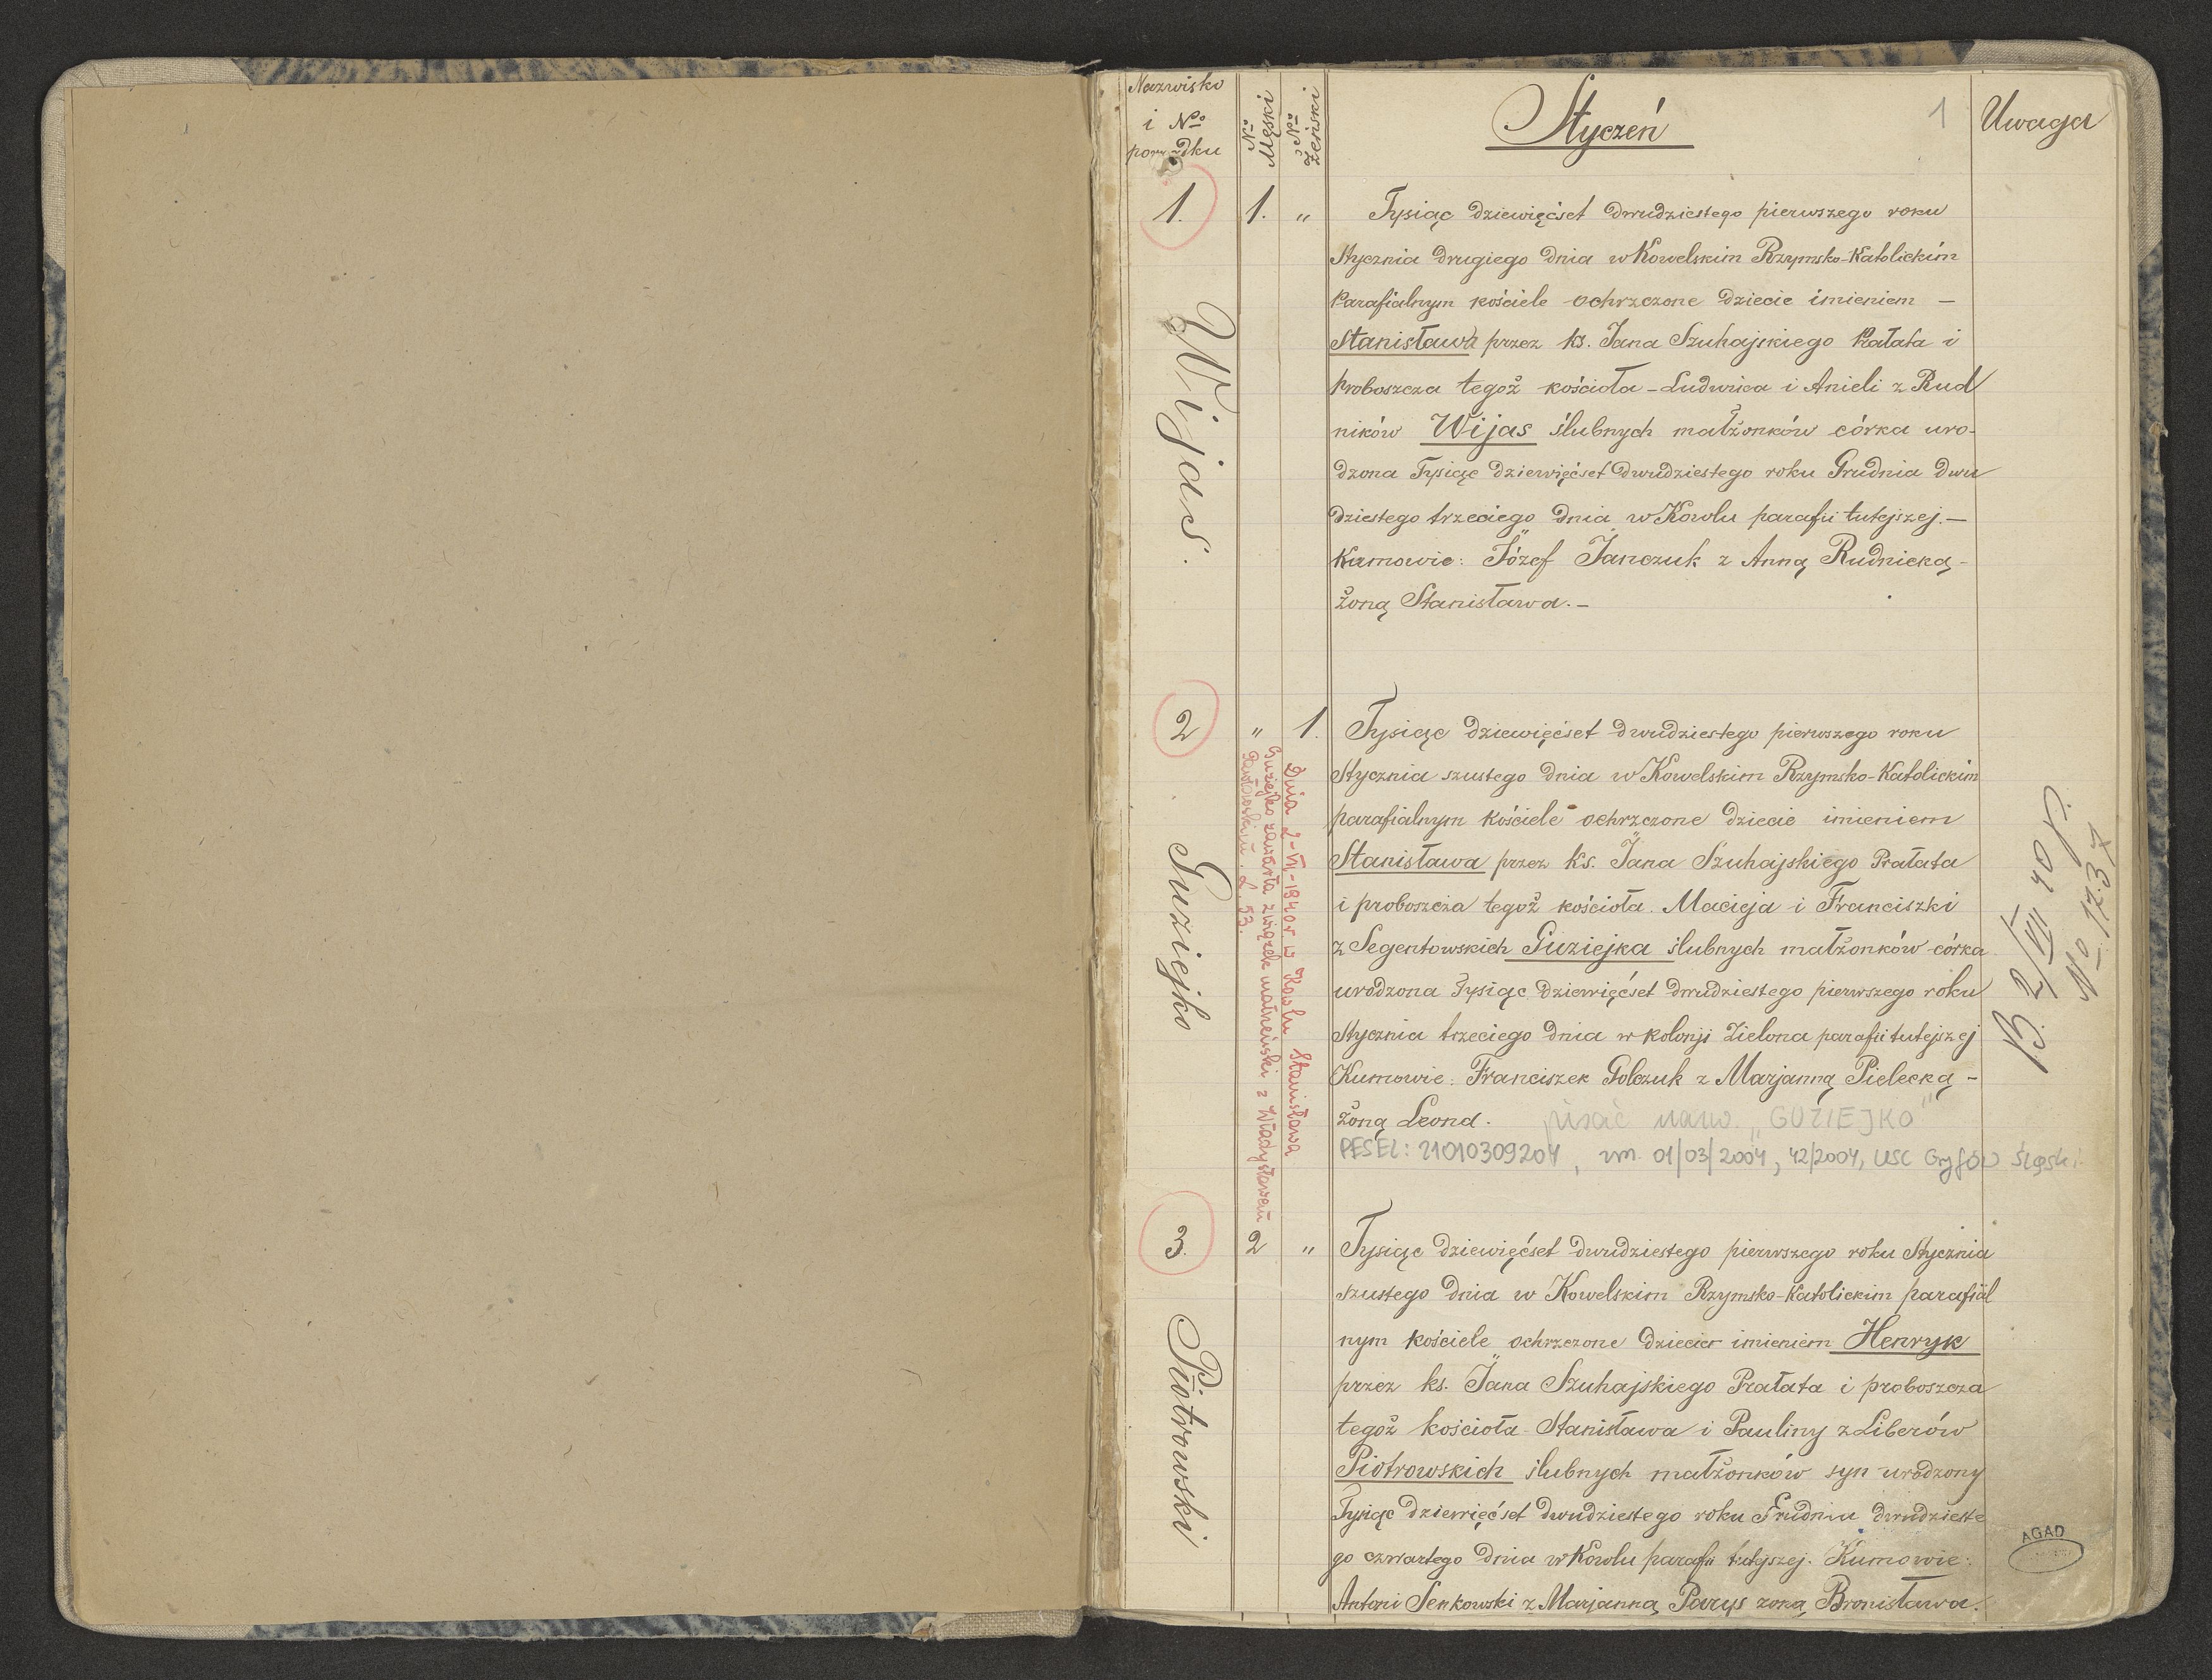 Nazwisko
i № 
porządku
№ Męski
№ Żeński
Styczeń
1
Uwaga
1.
1.
"
Wijas.
Tysiąc dziewięćset dwudziestego pierwszego roku
Stycznia drugiego dnia w Kowelskim Rzymsko-Katolickim
Parafialnym kościele ochrzczone dziecie imieniem —
Stanisława przez ks. Jana Szuhajskiego Prałata i
Proboszcza tegoż kościoła - Ludwika i Anieli z Rud
ników Wijas ślubnych małżonków córka uro-
dzona Tysiąc dziewięćset dwudziestego roku Grudnia dwu
dziestego trzeciego dnia w Kowlu parafii tutejszej.—
Kumowie: Józef Janczuk z Anną Rudnicką-
żoną Stanisława.—
2
"
1.
Guziejko
Dnia 2-VI-1940 r. w Kowlu Stanisława
Guziejko zawarła związek małżeński z Władysławem
Pawłowskim. L. 53.
Tysiąc dziewięćset dwudziestego pierwszego roku
Stycznia szustego dnia w Kowelskim Rzymsko-Katolickim
parafialnym kościele ochrzczone dziecie imieniem
Stanisława przez ks. Jana Szuhajskiego Prałata
i proboszcza tegoż kościoła. Macieja i Franciszki
z Segentowskich Guziejka ślubnych małżonków córka
urodzona Tysiąc dziewięćset dwudziestego pierwszego roku
Stycznia trzeciego dnia w kolonji Zielona parafii tutejszej
Kumowie: Franciszek Golczuk z Marjanną Pielecką -
żoną Leona.
pisać nazw. „GUZIEJKO"
PESEL: 21010309204, zm. 01/03/2004, 42/2004, USC Gryfów Śląski
B. 2/VII 40 r.
№ 1737
3.
2
"
Piotrowski
Tysiąc dziewięćset dwudziestego pierwszego roku Stycznia
szustego dnia w Kowelskim Rzymsko-Katolickim parafial
nym kościele ochrzczone dziecie imieniem Henryk
przez ks. Jana Szuhajskiego Prałata i proboszcza
tegoż kościoła - Stanisława i Pauliny z Liberów
Piotrowskich ślubnych małżonków syn urodzony
Tysiąc dziewięćset dwudziestego roku Grudnia dwudzieste
go czwartego dnia w Kowlu parafii tutejszej. Kumowie:
Antoni Senkowski z Marjanną Parys żoną Bronisława.
AGAD